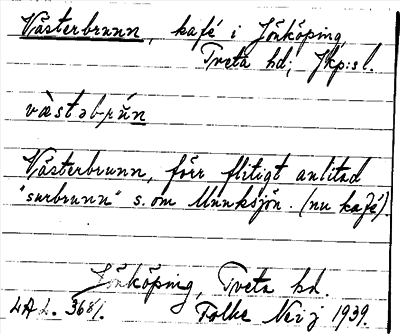 Västerbrunn, kafé i Jönköping,
Tveta hd; Jkp:s l.
västəbrún
Västerbrunn, förr flitigt anlitad
"surbrunn" s. om Munksjön. (nu kafé).
Jönköping, Tveta hd.
LAL. 3681. Folke 1939.